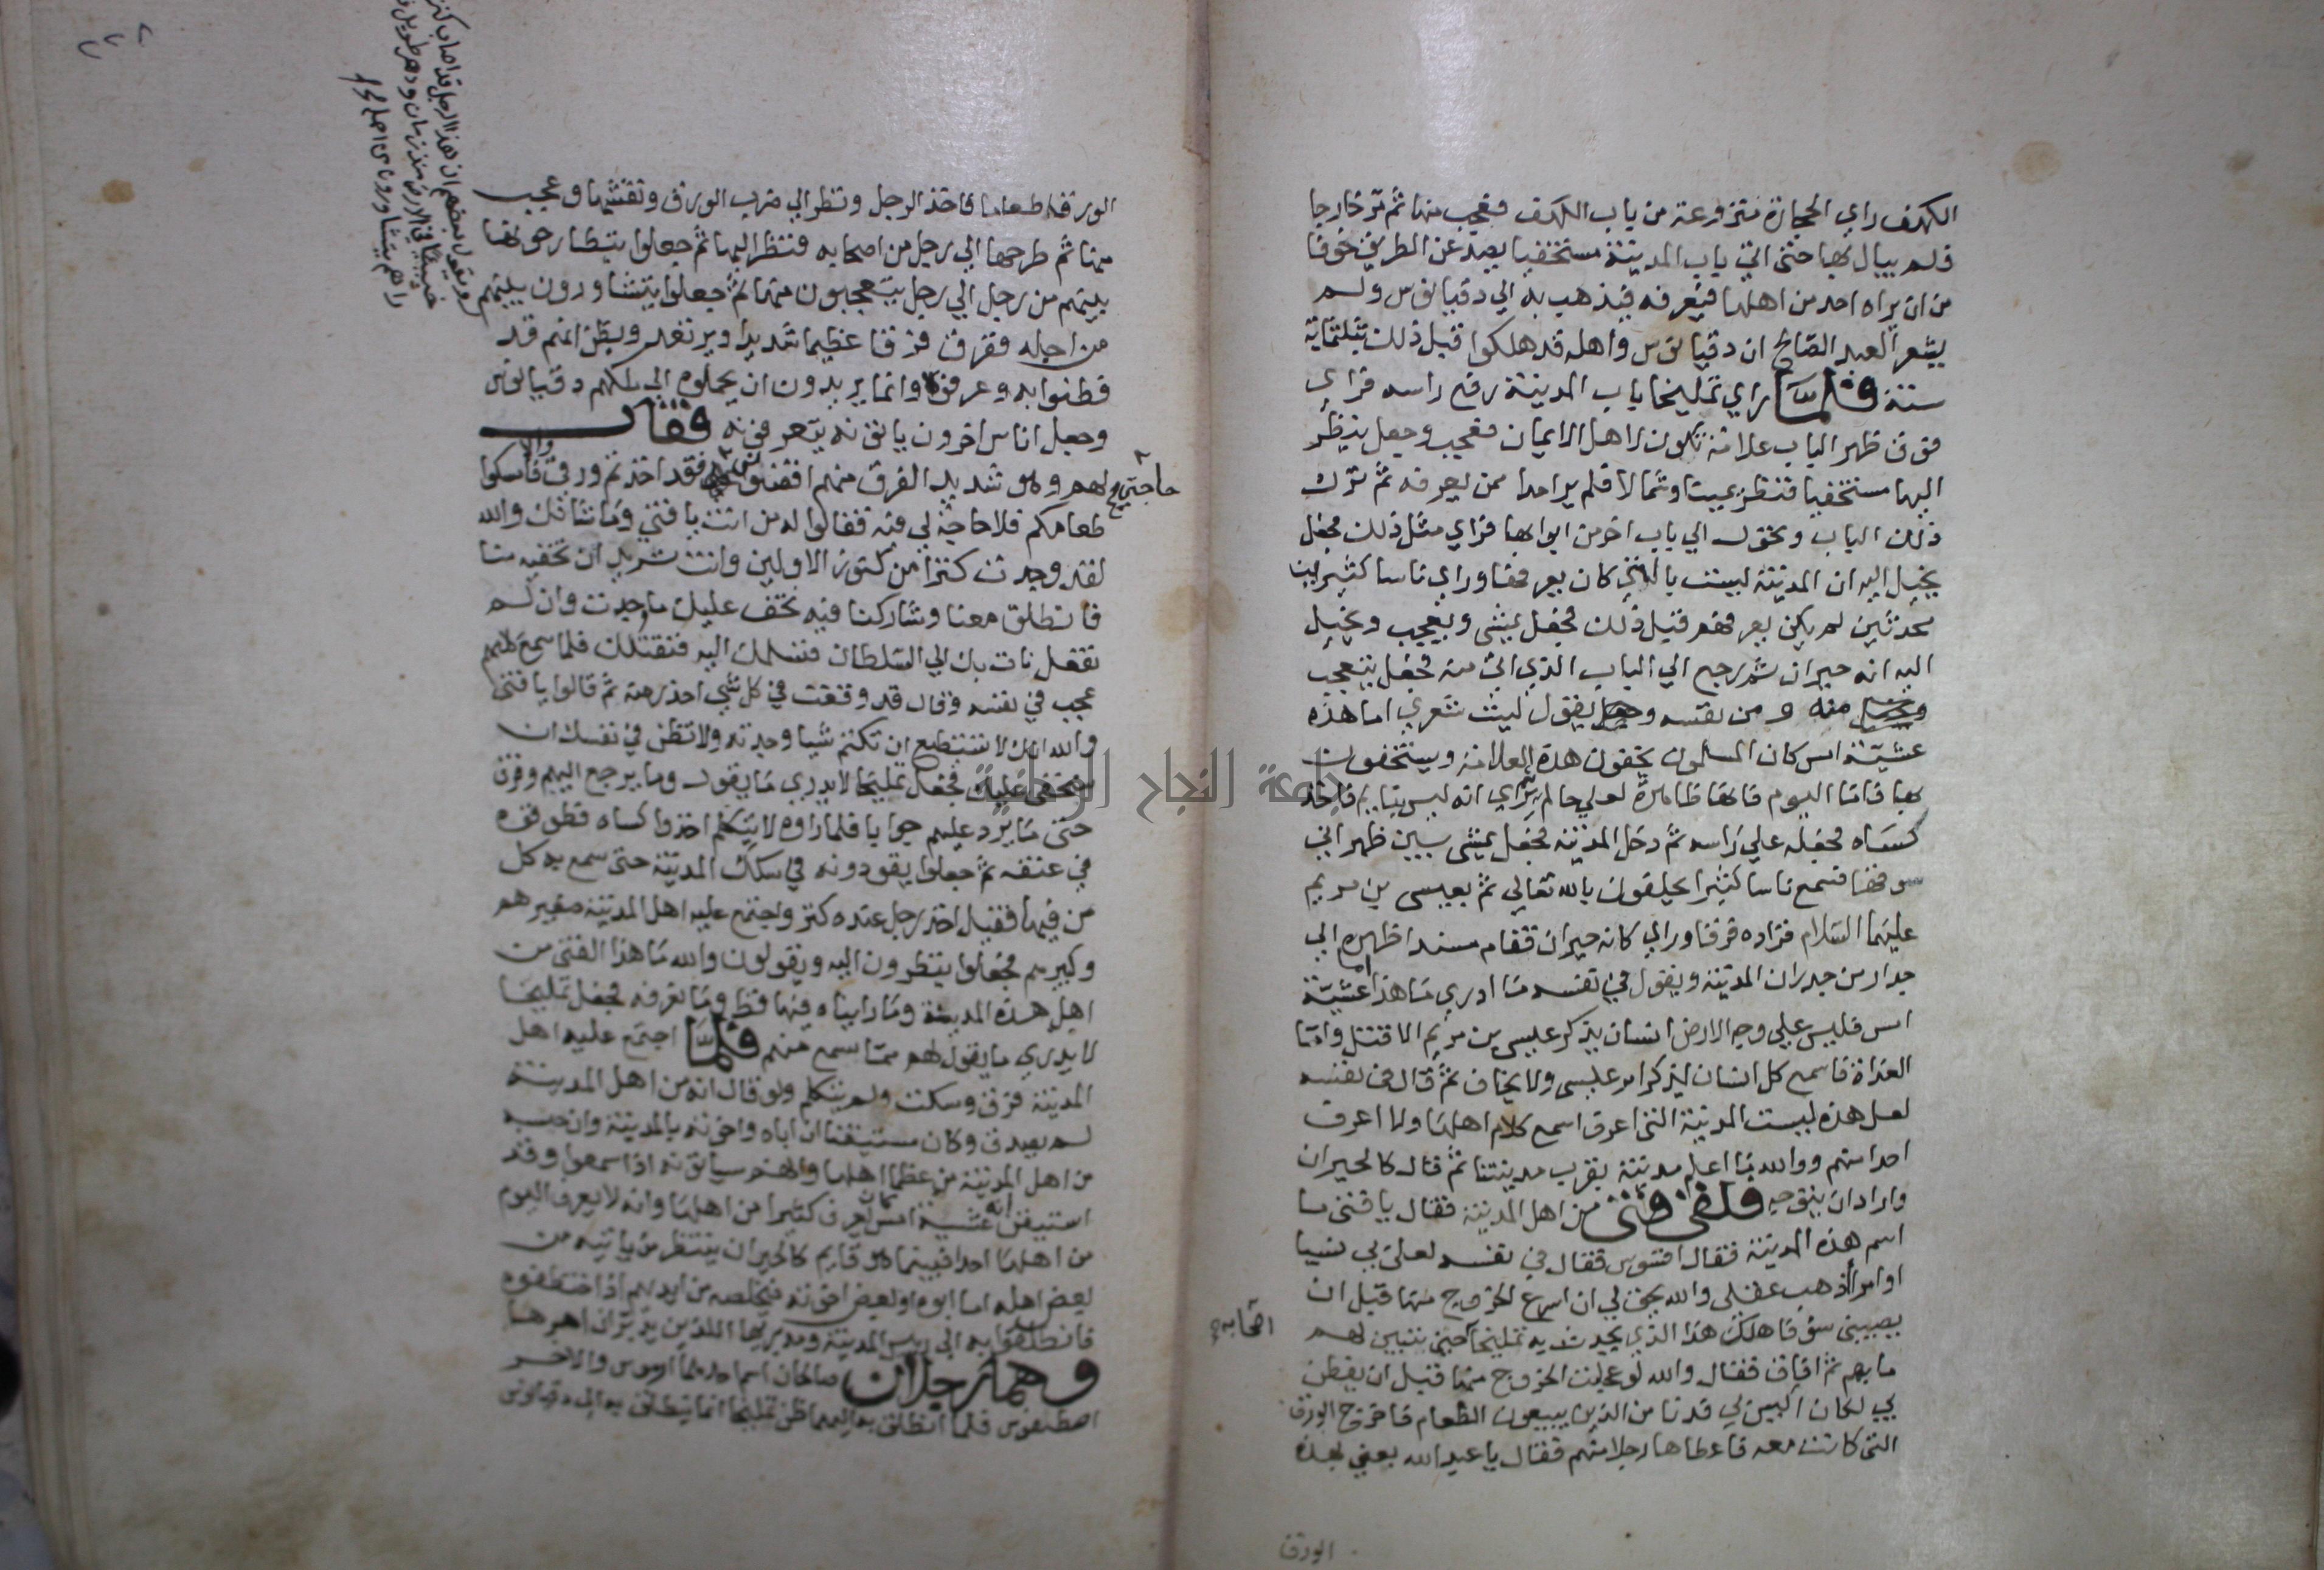 الكهف راي الحجارة منزوعة من باب الكهف فعجب منها ثم مر خارجا
فلم يبال بها حتى اتي باب المدينة مستخفيا بصد عن الطريق خوفا
من ان يراه احد من اهلها فيعرفه فيذهب به الي دقيانوس ولم
يشعر العبد الصالح ان دقيانوس واهله قد هلكوا قبل ذلك بثلثماية
سنة فلما راي تمليخا باب المدينة رفع راسه فراي
فوق ظهر الباب علامة تكون لاهل الايمان فعجب وجعل ينظر
اليها مستخفيا فنظر يمينا وشمالا فلم ير احدا ممن يعرفه ثم ترك
ذلك الباب وتحول الي باب اخر من ابوابها فراي مثل ذلك فجعل
يخيل اليه ان المدينة ليست بالتي كان يعرفها وراي ناسا كثيرين
محدثين لم يكن يعرفهم قبل ذلك فجعل يمشي ويعجب ويخيل
اليه انه حيران ثم رجع الي الباب الذي اتي منه فجعل يتعجب
منه ومن نفسه وجعل يقول ليت شعري اما هذه
عشية امس كان المسلمون يخفون هذه العلامة ويستخفون
بها فاما اليوم فانها ظاهرة لعلي حالم ثم راي انه ليس بنايم فاخذ
كساه فجعله علي راسه ثم دخل المدينة فجعل يمشي بين ظهراني
سوقها فسمع ناسا كثيرا يحلفون بالله تعالي ثم بعيسى بن مريم
عليهما السلام فزاده فرقا وراي كانه حيران فقام مسندا ظهره الي
جدار من جدران المدينة ويقول في نفسه ما ادري ما هذا اما عشية
امس فليس علي وجه الارض انسان يذكر عيسى بن مريم الا قتل واما
الغداة فاسمع كل انسان يذكر امر عيسى ولا يخاف ثم قال في نفسه
لعل هذه ليست المدينة التي اعرف اسمع كلام اهلها ولا اعرف
احدا منهم ووالله ما اعلم مدينة بقرب مدينتنا ثم قال كالحيران
واراد ان يتوجه فلقي فتى من اهل المدينة فقال يا فتى ما
اسم هذه المدينة فقال افسوس فقال في نفسه لعل بي شيا
او امرا اذهب عقلي والله يحق لي ان اسرع الخروج منها قبل ان
يصيبني سوء فاهلك هذا الذي يحدث به تمليخا حين تبين لهم
اصحابه
ما بهم ثم افاق فقال والله لو عجلت الخروج منها قبل ان يفطن
بي لكان اكيس لي فدنا من الذين يبيعون الطعام فاخرج الورق
التي كانت معه فاعطاها رجلا منهم فقال يا عبد الله بعني بهذه
الورق
الورق طعاما فاخذ الرجل ونظر الي ضرب الورق ونقشها وعجب
منها ثم طرحها الي رجل من اصحابه فنظر اليها ثم جعلوا يتطارحونها
بينهم من رجل الي رجل يتعجبون منها ثم جعلوا يتشاورون بينهم
من اجله ففرق فرقا عظيما شديدا ويرتعد ويظن انهم قد
فطنوا به وعرفوه وانما يريدون ان يحملوه الي ملكهم دقيانوس
وجعل اناس اخرون ياتونه يتعرفونه فقال
لهم وهو شديد الفرق منهم فقد اخذتم ورقي فامسكوا
حاجتي
طعامكم فلا حاجة لي فيه فقالوا له من انت يا فتى وما شانك والله
لقد وجدت كنزا من كنوز الاولين وانت تريد ان تخفيه منا
فانطلق معنا وشاركنا فيه نخف عليك ما وجدت وان لم
تفعل نات بك الي السلطان فنسلمك اليه فنقتلك فلما سمع كلامهم
عجب في نفسه وقال قد وقعت في كل شي احذر منه ثم قالوا يا فتى
والله انك لا تستطيع ان تكتم شيا وجدته ولا تظن في نفسك ان
ستخفي عليك فجعل تمليخا لا يدري ما يقول وما يرجع اليهم وفرق
حتى ما يرد عليهم جوابا فلما راوه لا يتكلم اخذوا كساه فطوقوه
في عنقه ثم جعلوا يقودونه في سكك المدينة حتى سمع به كل
من فيها فقيل اخذ رجل عنده كنز واجتمع عليه اهل المدينة صغيرهم
وكبيرهم فجعلوا ينظرون اليه ويقولون والله ما هذا الفتى من
اهل هذه المدينة وما رايناه فيها قط وما نعرفه فجعل تمليخا
لا يدري ما يقول لهم مما سمع منهم فلما اجتمع عليه اهل
المدينة فرق وسكت ولم يتكلم ولو قال انه من اهل المدينة
لم يصدق وكان مستيقنا ان اباه واخوته بالمدينة وان حسبه
من اهل المدينة من عظما اهلها وانهم سياتونه اذا سمعوا وقد
استيقن انه عشية امس كان يعرف كثيرا من اهلها وانه لا يعرف اليوم
من اهلها احدا فبينما هو قايم كالحيران ينتظر من ياتيه من
بعض اهله اما ابوه او بعض اخوته فيخلصه من ايديهم اذا اختطفوه
فانطلقوا به الي رييس المدينة ومدبريها اللذين يدبران امرها
وهما رجلان صالحان اسم احدهما ارموس والاخر
اصطفوس فلما انطلق به اليهما ظن تمليخا انما ينطلق به الي دقيانوس
ويقول بعضهم ان هذا الرجل قد اصاب كنزا
خبيئا في الارض منذ زمان ودهر طويل
جامعة النجاح الوطنية